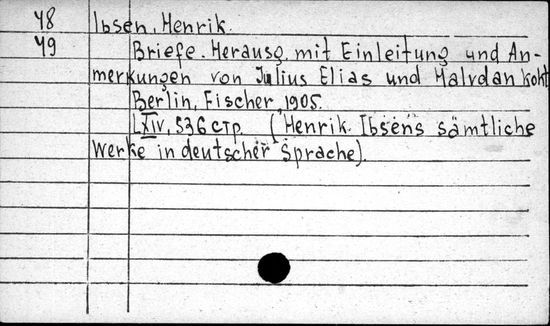 48 Ibsen, Henrik.
49 Briefe. Herausg. mit Einleitung und An-
merkungen von Julius Elias und Halvdan Koht
Berlin, Fischer, 1905.
LXIV, 536 стр. (Henrik Ibsens sämtliche
Werke in deutscher Sprache).